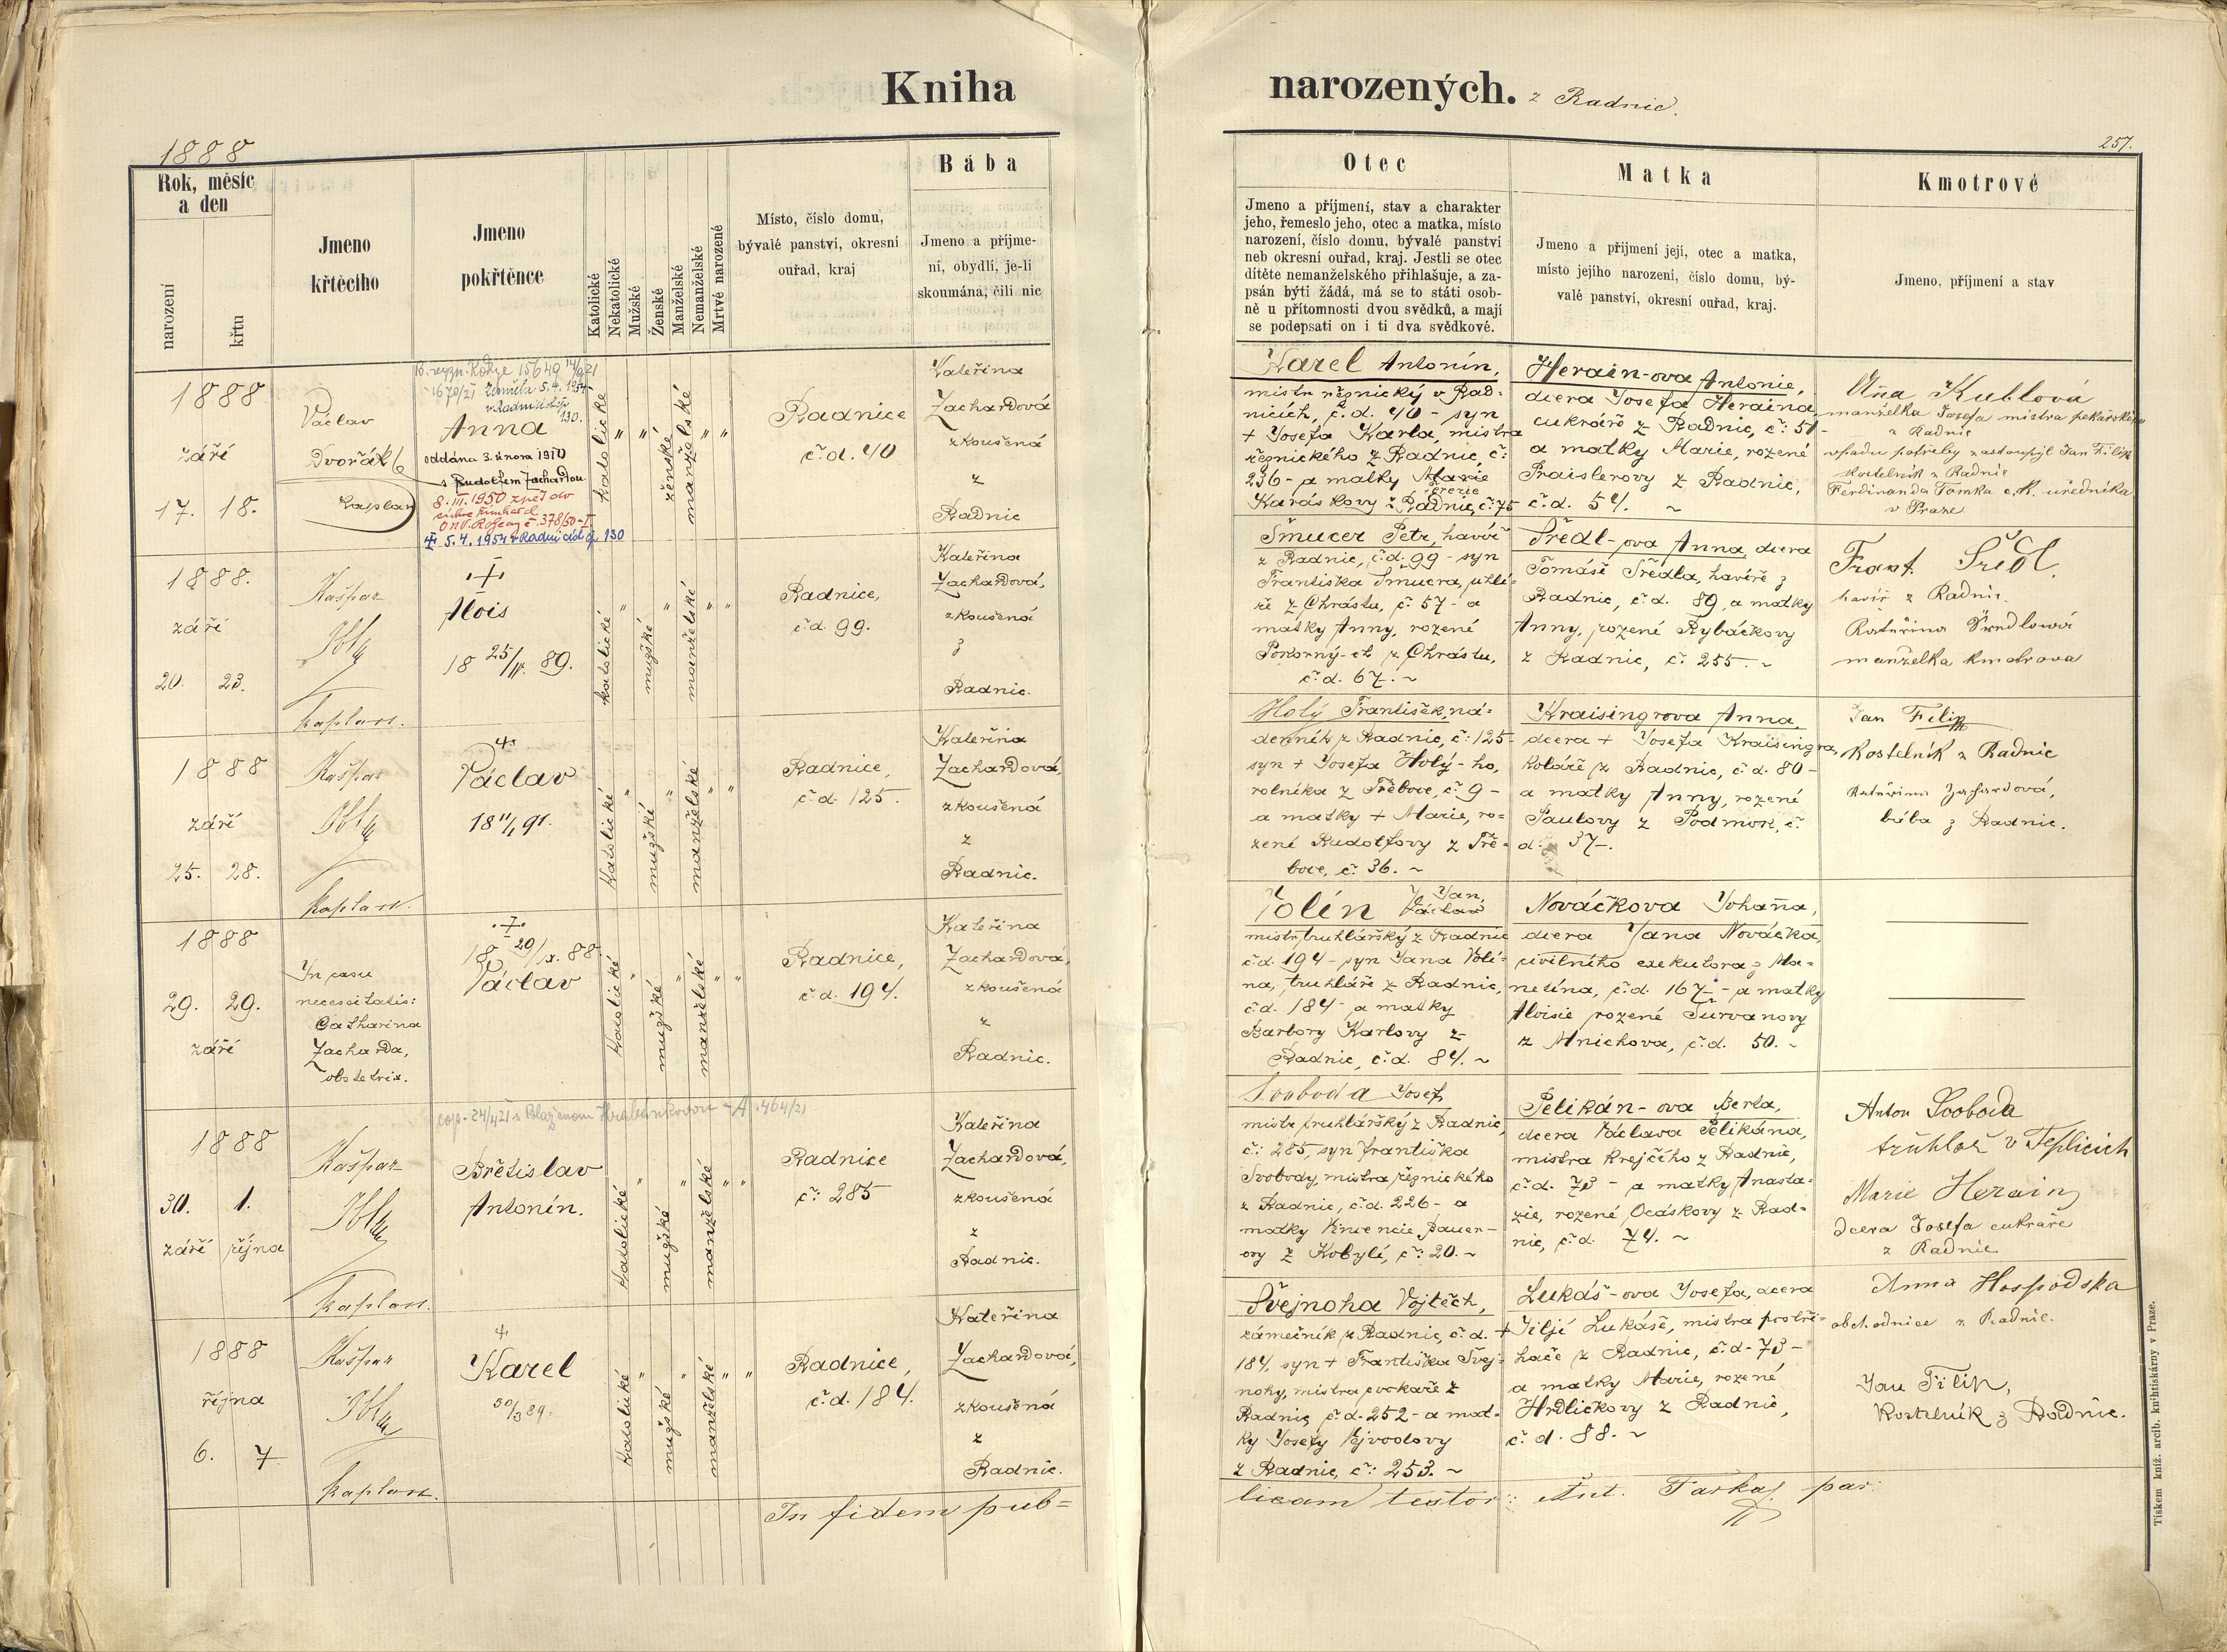 Kniha
narozených. z Radnic.
1888
257.
Rok, měsíc
a den
narození
křtu
Jmeno
křtěcího
Jmeno
pokřtěnce
Katolické
Nekatolické
Mužské
Ženské
Manželské
Nemanželské
Mrtvé narozené
Místo, číslo domu,
bývalé panství, okresní
ouřad, kraj
Bába
Jmeno a příjme-
ní, obydlí, je-li
skoumána, čili nic
Otec
Jmeno a příjmení, stav a charakter
jeho, řemeslo jeho, otec a matka, místo
narození, číslo domu, bývalé panství
neb okresní ouřad, kraj. Jestli se otec
dítěte nemanželského přihlašuje, a za-
psán býti žádá, má se to státi osob-
ně u přítomnosti dvou svědků, a mají
se podepsati on i ti dva svědkové.
Matka
Jmeno a přijmení její, otec a matka,
místo jejího narození, číslo domu, bý-
valé panství, okresní ouřad, kraj.
Kmotrové
Jmeno, příjmení a stav
1888
září
17. 18.
Václav
Dvořák
kaplan
15649 14/9 21
Zemřela 5.4.1954
130.
Anna
oddána 3. února 1910
s Rudolfem Zachardou
8. III. 1950 zpět do
č. 378/50-I
5.4.1954 v Radnicích čp. 130
katolické " " ženské manželské " "
Radnice
č. d. 40
Kateřina
Zachardová
zkoušená
z
Radnic
Karel Antonín,
mistr řeznický v Rad-
nicích, č. d. 40 - syn
+ Josefa Karla, mistra
řeznického z Radnic, č.
236 - a matky Marie
Terezie
Karáskovy z Radnic, č. 75
Herain-ova Antonie,
dcera Josefa Heraina,
cukráře z Radnic, č: 51-
a matky Marie, rozené
Praislerovy z Radnic,
č. d. 54. ~
Aña Kublová
manželka Josefa mistra pekařského
z Radnic
v pádu potřeby zastoupil Jan Filip
kostelník z Radnic
Ferdinanda Tomka c. k. úředníka
v Praze
1888.
září
20. 23.
Kašpar
kaplan.
+
Alois
18 25/ 89.
katolické " mužské " manželské " "
Radnice,
č. d. 99.
Kateřina
Zachardová,
zkoušená
z
Radnic.
Šmucer Petr, havíř
z Radnic, č. d. 99 - syn
Františka Šmucra, uhlí-
ře z Chrástu, č. 57 - a
matky Anny, rozené
Pokorný-ch z Chrástu,
č. d. 67. ~
Šředl-ova Anna, dcera
Tomáše Šředla, havíře z
Radnic, č. d. 89, a matky
Anny, rozené Rybáčkovy
z Radnic, č. 255. ~
Frant. Šredl.
havíř z Radnic.
Kateřina Šredlová
manželka kmotrova
1888
září
25. 28.
Kašpar
kaplan.
+
Václav
18 11/1 91.
katolické " mužské " manželské " "
Radnice,
č. d. 125.
Kateřina
Zachardová,
zkoušená
z
Radnic.
Holý František, ná-
deník z Radnic, č: 125-
syn + Josefa Holý-ho,
rolníka z Třeboce, č. 9 -
a matky + Marie, ro-
zené Rudolfovy z Tře-
boce, č. 36. ~
Kraisingrova Anna
dcera + Josefa Kraisingra,
koláře z Radnic, č. d. 80 -
a matky Anny, rozené
Paulovy z Podmok, č.
d. 37.
Jan Filip
kostelník z Radnic
Kateřina Zachardová,
bába z Radnic.
1888
29. 29.
září
In casu
necessitatis:
Catharina
Zacharda,
obstetrix.
+
18 29/IX. 88.
Václav
katolické " mužské " manželské " "
Radnice,
č. d. 194.
Kateřina
Zachardová,
zkoušená
z
Radnic.
Volín Jan,
Václav
mistr truhlářský z Radnic
č. d. 194 - syn Jana Volí-
na, truhláře z Radnic,
č. d. 184 - a matky
Barbory Karlovy z
Radnic, č. d. 84. ~
Nováčkova Johaña,
dcera Jana Nováčka,
civilního exekutora z Ma-
netína, č. d. 167 - a matky
Aloisie rozené Turvanovy
z Mnichova, č. d. 50. ~
1888
30. 1.
září října
Kašpar
kaplan.
cop. 24/4 21 s Blaženou Hrabánkovou - A. 464/21
Břetislav
Antonín.
katolické " mužské " manželské " "
Radnice
č: 285
Kateřina
Zachardová,
zkoušená
z
Radnic.
Svoboda Josef,
mistr truhlářský z Radnic,
č: 285, syn Františka
Svobody, mistra řeznického
z Radnic, č. d. 226 - a
matky Vincencie Bauer-
ovy z Kobylí, č: 20. ~
Pelikán-ova Berta,
dcera Václava Pelikána,
mistra krejčího z Radnic,
č. d. 73 - a matky Anasta-
zie, rozené Ocáskovy z Rad-
nic, č. d. 74. ~
Anton Svoboda
truhlař v Teplicích
Marie Herain
dcera Josefa cukráře
z Radnic
1888
října
6. 7
Kašpar
kaplan.
+
Karel
30/3 89.
katolické " mužské " manželské " "
Radnice,
č. d. 184.
Kateřina
Zachardová,
zkoušená
z
Radnic.
Švejnoha Vojtěch,
zámečník z Radnic, č. d.
184, syn + Františka Švej-
nohy, mistra provazníka z
Radnic, č. d. 252 - a mat-
ky Josefy Vejvodovy
z Radnic, č: 253. ~
Lukáš-ova Josefa, dcera
+ Jiljí Lukáše, mistra postři-
hače z Radnic, č. d. 73 -
a matky Marie, rozené
Hrdličkovy z Radnic,
č. d. 88. ~
Anna Hospodska
obchodnice z Radnic.
Jan Filip,
kostelník z Radnic.
In fidem pub=
licam testor: Ant. par:
Tiskem kníž. arcib. knihtiskárny v Praze.